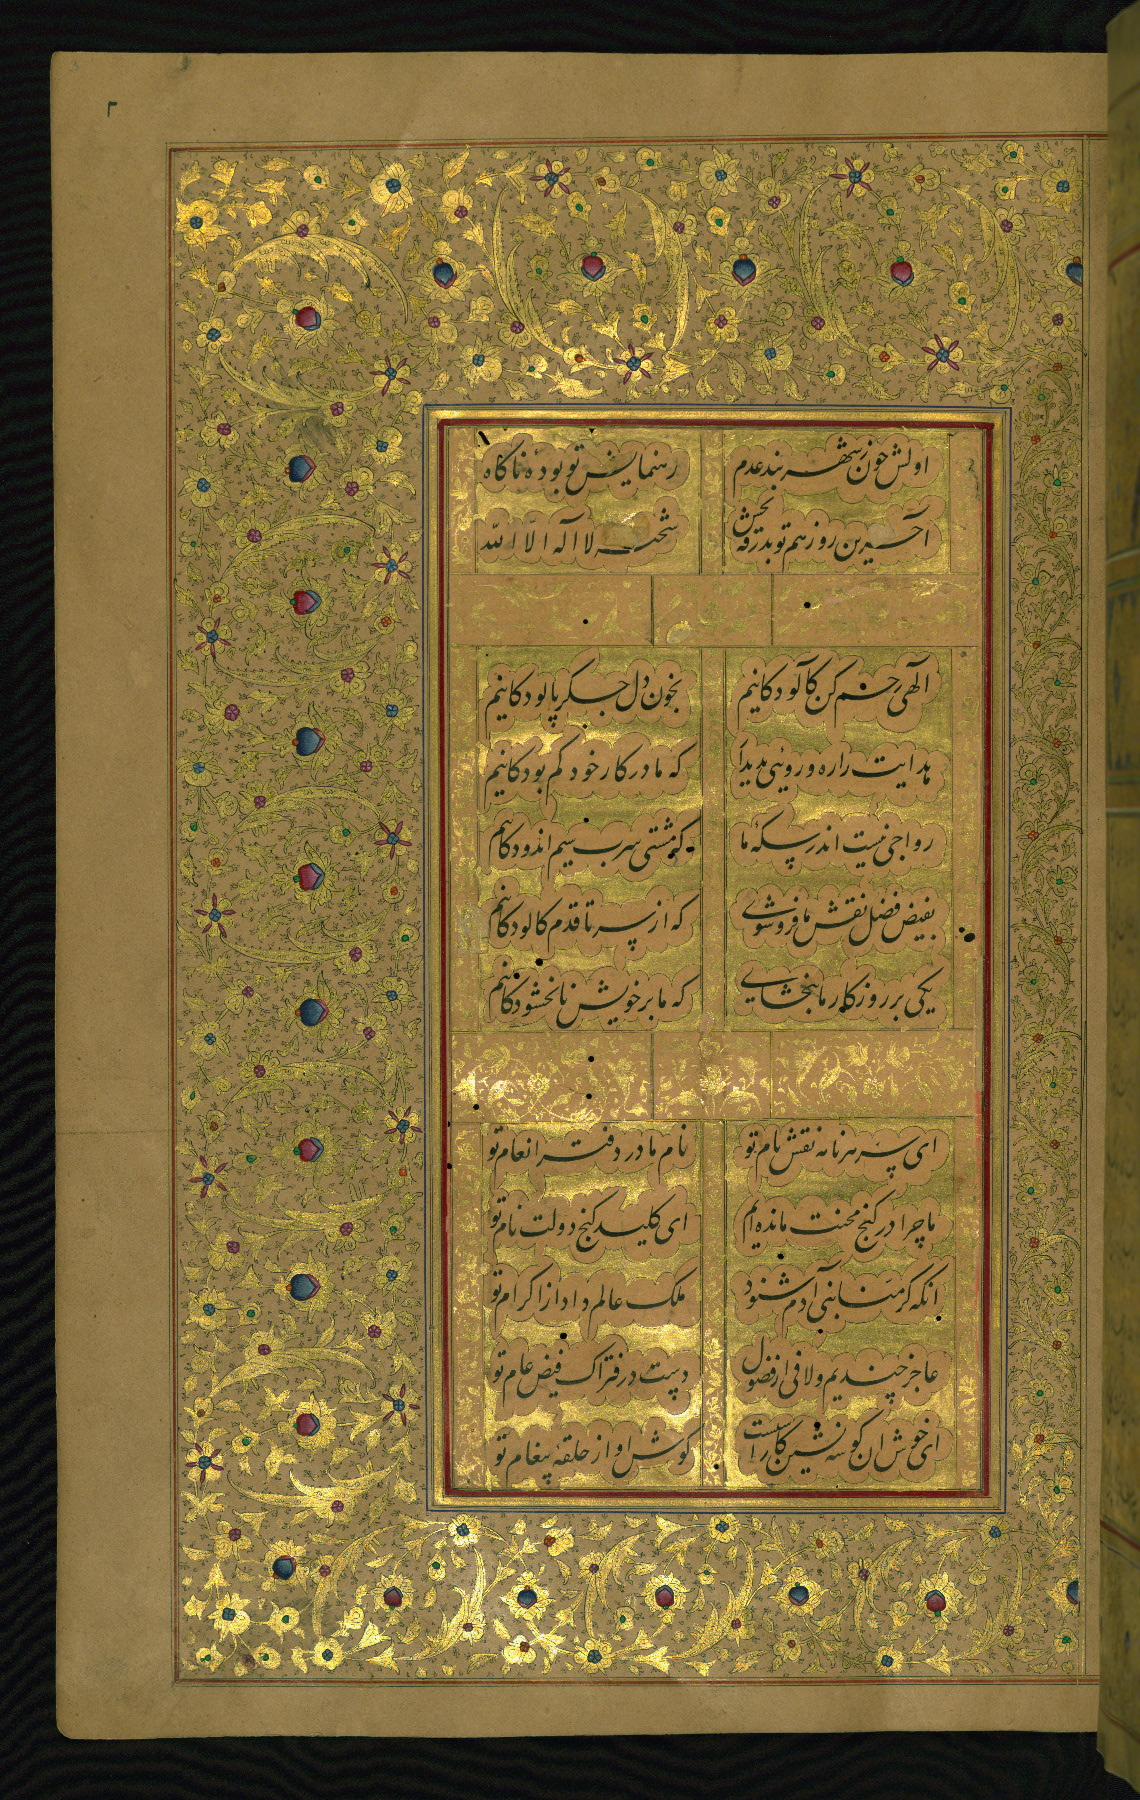 ۲
اولش چون ز شهر بند عدم رهنمایش تو بوده ناکاه
آخرین روز هم تو بدرقه بخش لا اله الا الله
الهی رحم کن کالودکانیم بخون دل جکر پالودکانیم
هدایت را ره و رویی که ما در کار خود کم بودکانیم
رواجی نیست اندر سکهٔ ما که مشتی سرب سیم اندودکانیم
بفیض فضل نقش ما فروشوی که از سر تا قدم کالودکانیم
یکی بر روزکار ما ببخشای که ما بر خویش نابخشودکانیم
ای سر هر نامه نقش نام تو نام ما در دفتر انعام تو
ما چرا در کنج محنت مانده‌ایم ای کلید کنج دولت نام تو
انکه کرمنا بنی آدم شنود ملک عالم داد از اکرام تو
عاجز چندیم و لافی از فضول دست در فتراک فیض عام تو
ای خوش ان کوشه نشین کاراست کوش او از حلقهٔ پیغام تو